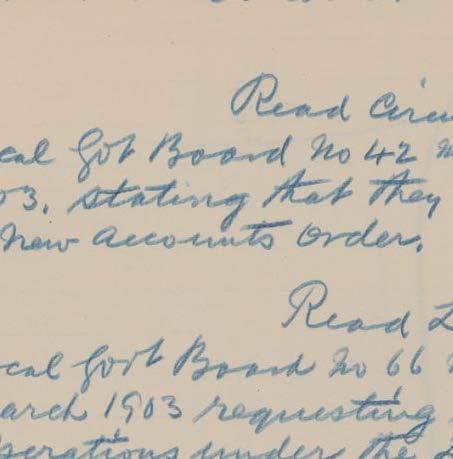 Read Circu
cal Govt Board No 42
03. stating that they
New Accounts Order.
Read L
cal Govt Board No 66
arch 1903 requesting
perations under the